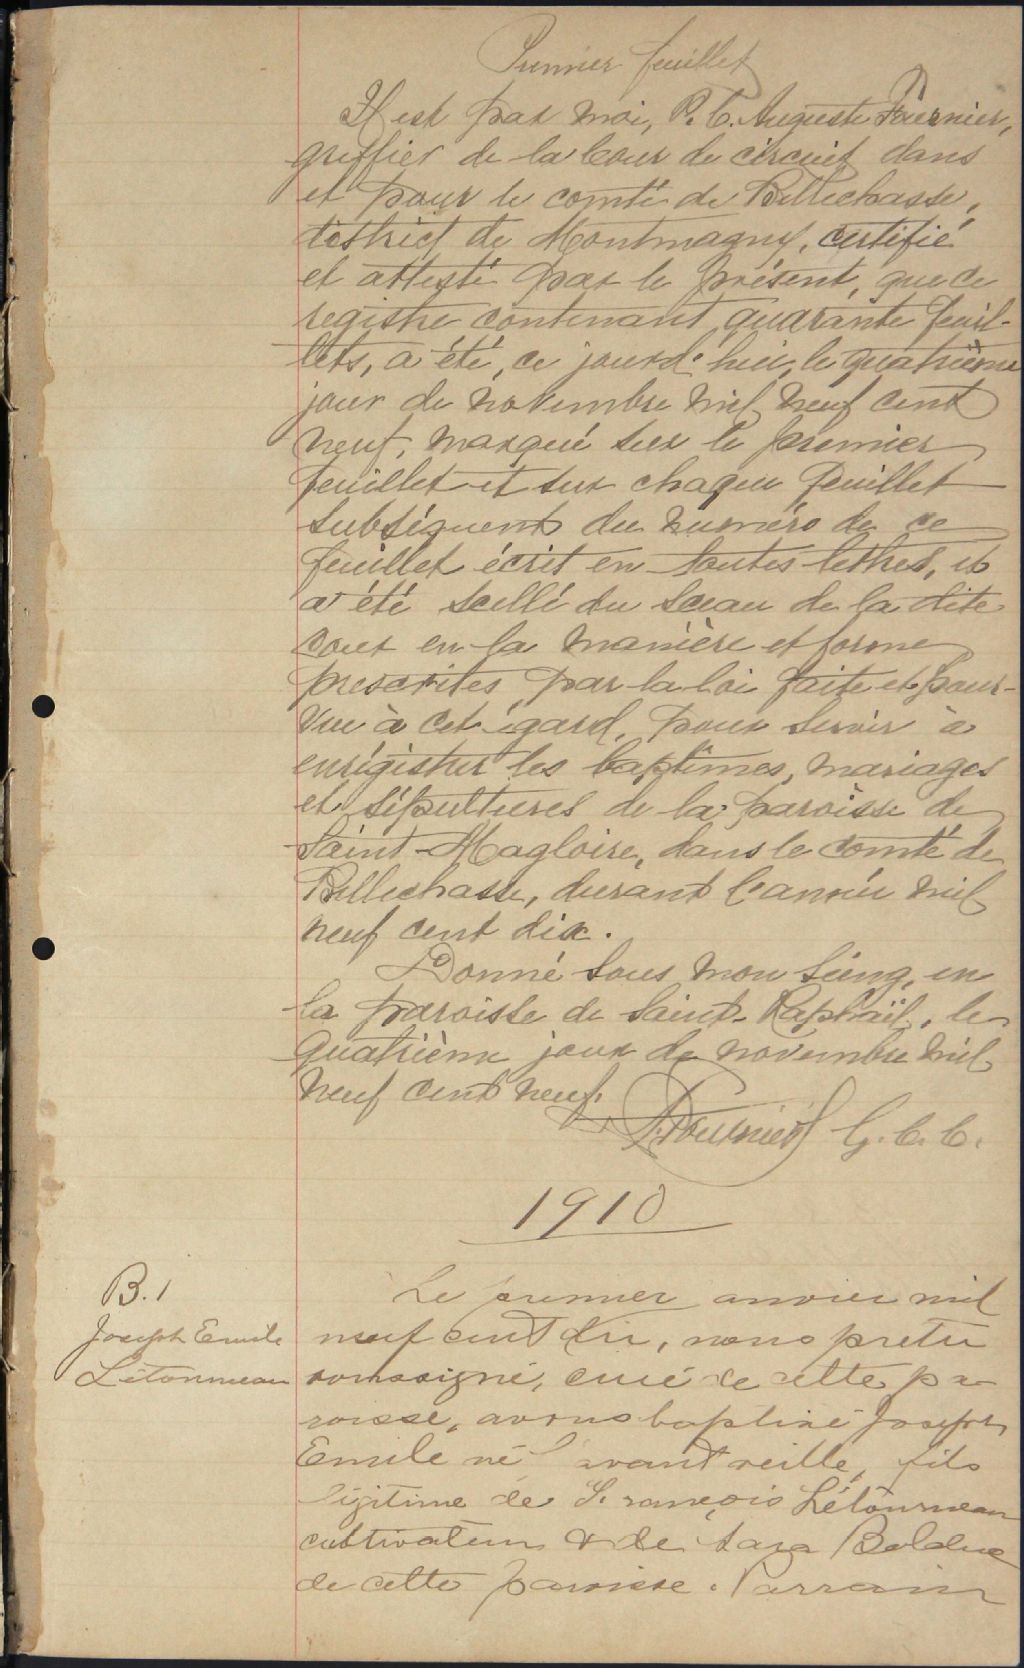 Premier feuillet
Il est par moi, P. C. Auguste Fournier,
greffier de la Cour de circuit dans
et pour le comté de Bellechasse,
district de Montmagny, certifié
et attesté par le présent, que ce
registre contenant quarante feuil-
lets, a été, ce jourd'hui, le quatrième
jour de novembre mil neuf cent
neuf, marqué sur le premier
feuillet et sur chaque feuillet
subséquent du numéro de ce
feuillet écrit en toutes lettres, et
a été scellé du sceau de la dite
cour en la manière et forme
prescrites par la loi faite et pour-
vue à cet égard, pour servir à
enrégistrer les baptêmes, mariages
et sépultures de la paroisse de
Saint-Magloire, dans le comté de
Bellechasse, durant l'année mil
neuf cent dix.
Donné sous mon seing, en
la paroisse de Saint-Raphaël, le
quatrième jour de novembre mil
neuf cent neuf.
Fournier G. C. C.
1910
B. 1
Joseph Emile
Létourneau
Le premier anvier mil
neuf cent dix, nous prêtre
soussigné, curé de cette pa-
roisse, avons baptisé Joseph
Emile né l'avant veille, fils
légitime de François Létourneau
cultivateur & de Sara Bolduc
de cette paroisse. Parrain